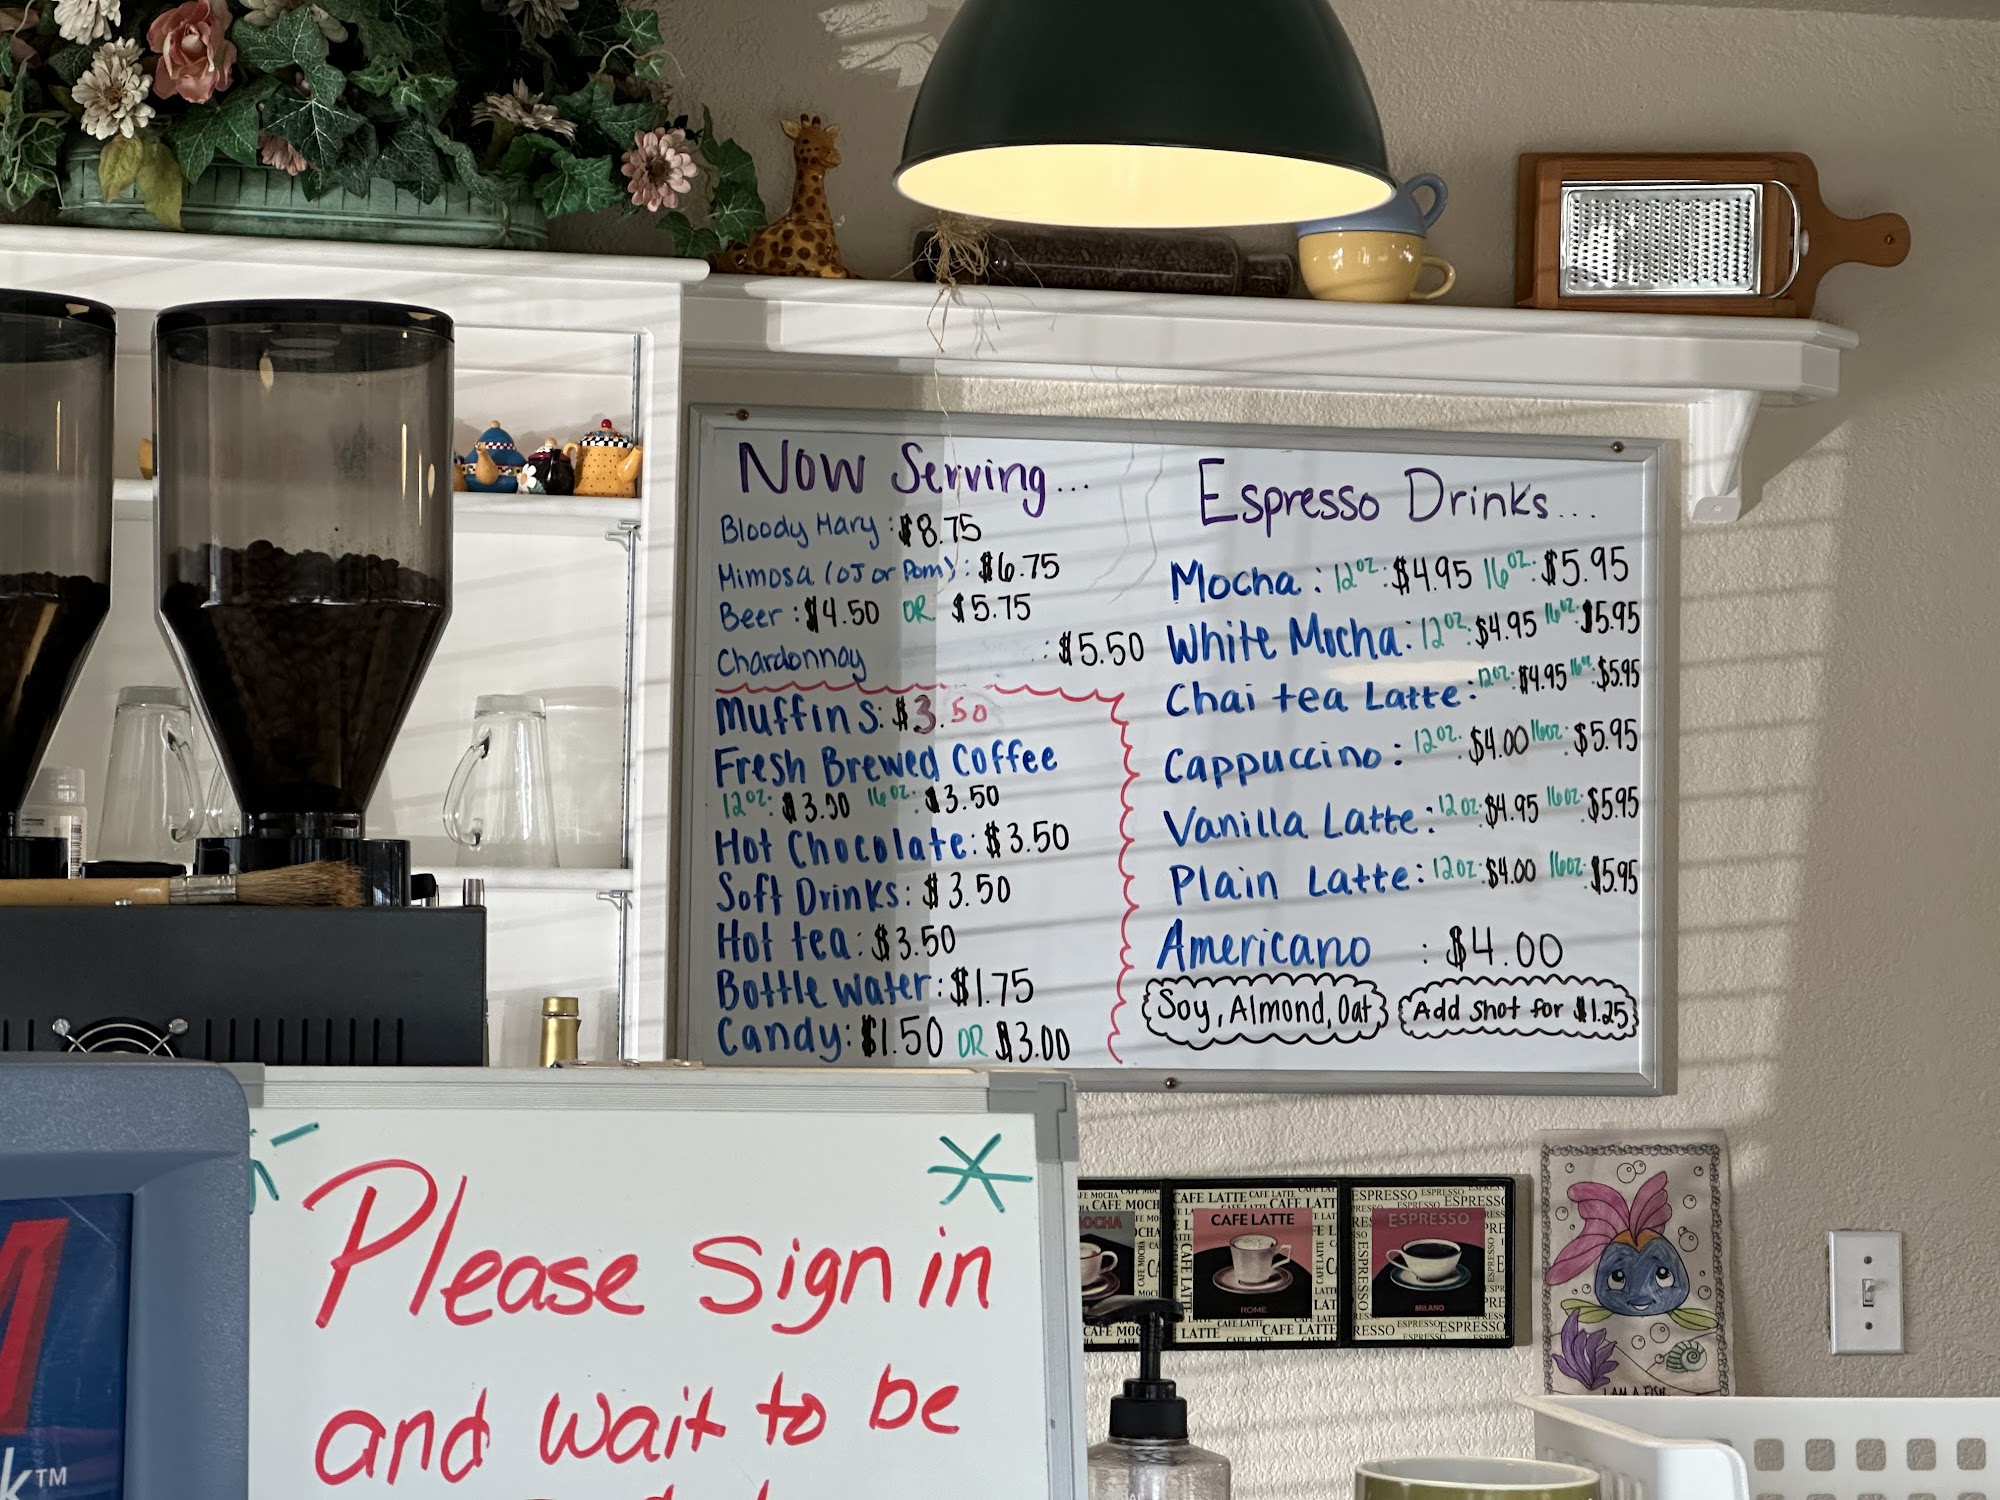 Now Serving...
Bloody Mary: $8.75
Mimosa (OJ or Pom): $6.75
Beer: $4.50 OR $5.75
Chardonnay : $5.50
Muffins: $3.50
Fresh Brewed Coffee
12oz: $3.00 16oz: $3.50
Hot Chocolate: $3.50
Soft Drinks: $3.50
Hot tea: $3.50
Bottle water: $1.75
Candy: $1.50 OR $3.00
Espresso Drinks...
Mocha: 12oz: $4.95 16oz: $5.95
White Mocha: 12oz: $4.95 16oz: $5.95
Chai tea Latte: 12oz: $4.95 16oz: $5.95
Cappuccino: 12oz: $4.00 16oz: $5.95
Vanilla Latte: 12oz: $4.95 16oz: $5.95
Plain Latte: 12oz: $4.00 16oz: $5.95
Americano : $4.00
Soy, Almond, Oat
Add shot for $1.25
Please sign in
and wait to be
CAFE LATTE
ROME
ESPRESSO
MILANO
I AM A FISH